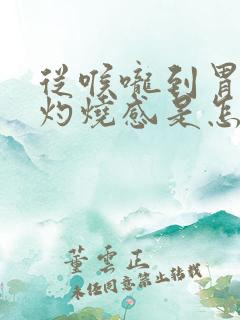 從喉嚨到胃
灼燒感是怎
董雲正
未任同意禁止转载